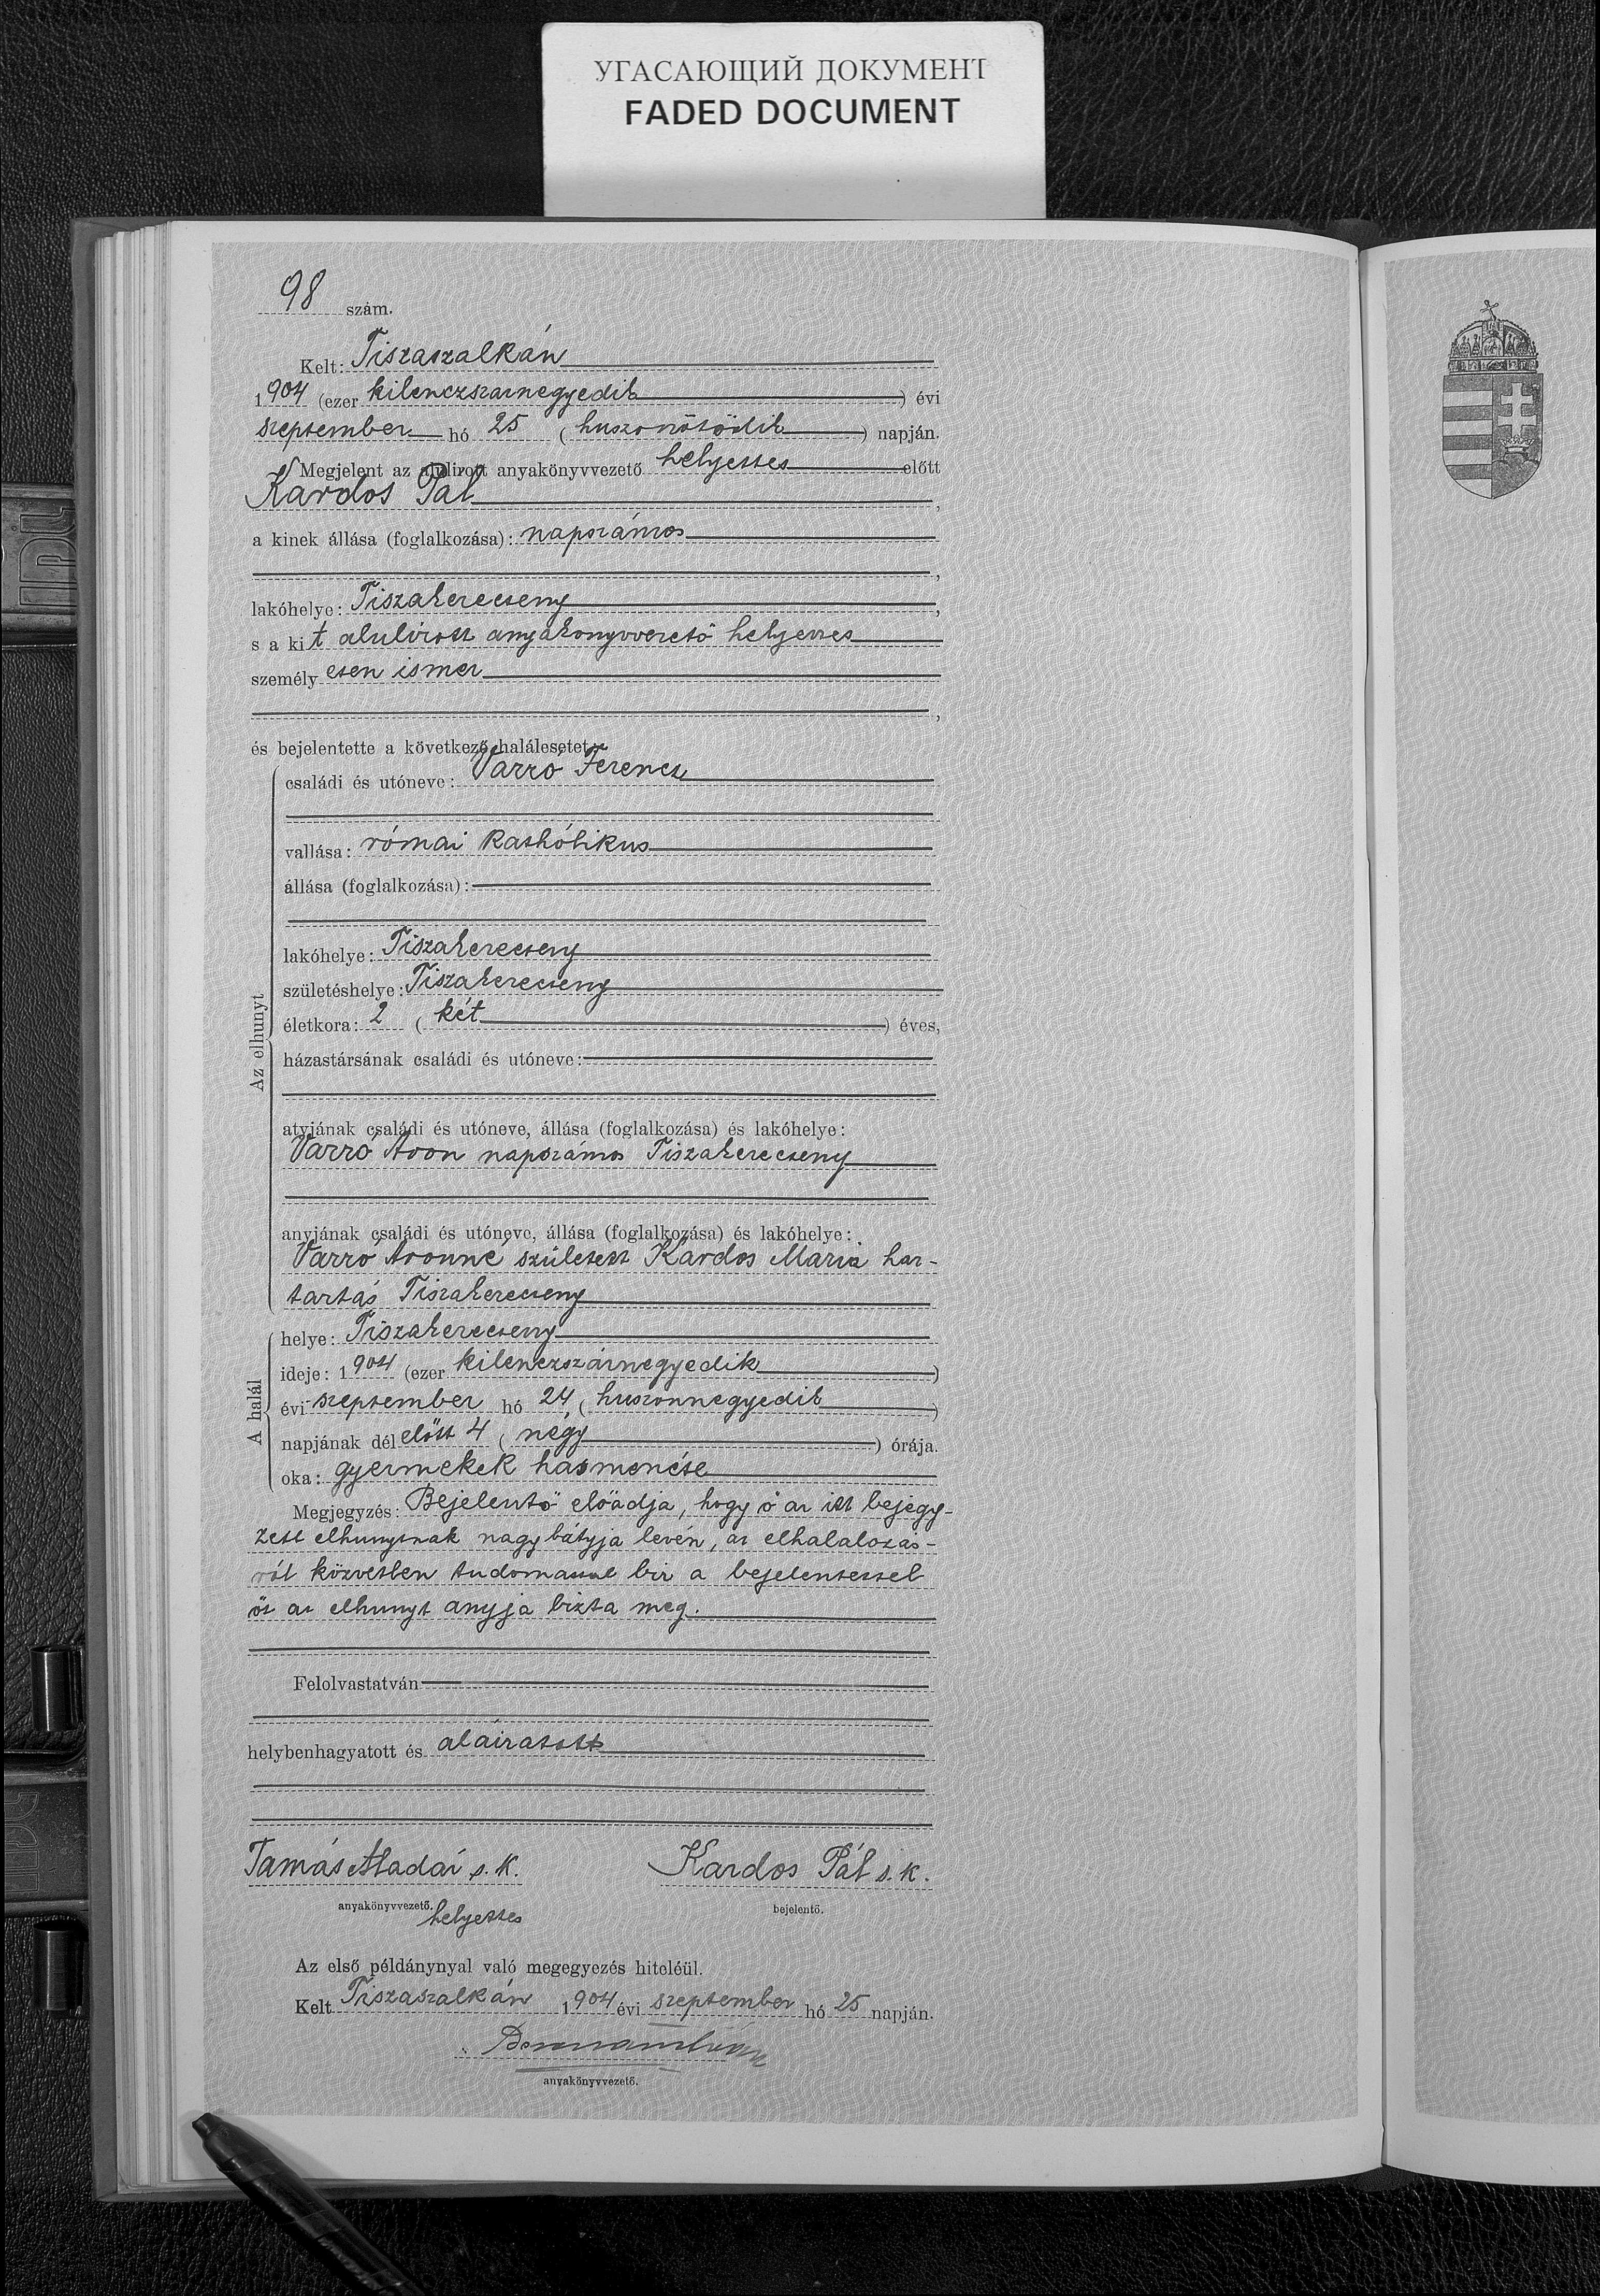 УГАСАЮЩИЙ ДОКУМЕНТ
FADED DOCUMENT
98 szám.
Kelt: Tiszaszalkán
1904 (ezer kilenczszáznegyedik) évi
szeptember hó 25 (huszonötödik) napján.
Megjelent az alulirott anyakönyvvezető helyettes előtt
Kardos Pál,
a kinek állása (foglalkozása): napszámos
,
lakóhelye: Tiszakerecseny,
s a kit alulirott anyakönyvvezető helyettes
személyesen ismer
,
és bejelentette a következő halálesetet:
Az elhunyt
családi és utóneve: Varró Ferencz
vallása: római kathólikus
állása (foglalkozása):
lakóhelye: Tiszakerecseny
születéshelye: Tiszakerecseny
életkora: 2 (két) éves,
házastársának családi és utóneve:
atyjának családi és utóneve, állása (foglalkozása) és lakóhelye:
Varró Áron napszámos Tiszakerecseny
anyjának családi és utóneve, állása (foglalkozása) és lakóhelye:
Varró Áronné született Kardos Mária ház-
tartás Tiszakerecseny
A halál
helye: Tiszakerecseny
ideje: 1904 (ezer kilenczszáznegyedik)
évi szeptember hó 24 (huszonnegyedik)
napjának délelőtt 4 (négy) órája.
oka: gyermekek hasmenése
Megjegyzés: Bejelentő előadja, hogy ő az itt bejegy-
zett elhunytnak nagybátyja lévén, az elhalálozás-
ról közvetlen tudomással bir a bejelentéssel
őt az elhunyt anyja bizta meg.
Felolvastatván
helybenhagyatott és aláiratott
Tamás Aladár s. k. Kardos Pál s. k.
anyakönyvvezető. helyettes bejelentő.
Az első példánynyal való megegyezés hiteléül.
Kelt Tiszaszalkán 1904 évi szeptember hó 25 napján.
anyakönyvvezető.